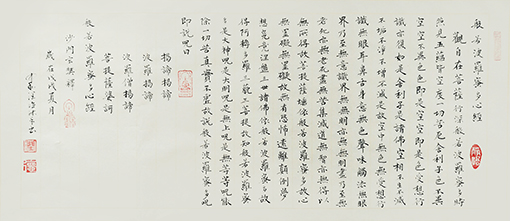 般若波羅蜜多心經
觀自在菩薩行深般若波羅蜜多時
照見五蘊皆空度一切苦厄舍利子色不異
空空不異色色即是空空即是色受想行
識亦復如是舍利子是諸法空相不生不滅
不垢不淨不增不減是故空中無色無受想行
識無眼耳鼻舌身意無色聲味觸法無眼
界乃至無意識界無無明亦無無明盡乃至無
老死亦無老死盡無苦集滅道無智亦無得以
無所得故菩提薩埵依般若波羅蜜多故心
無罣礙無罣礙故無有恐怖遠離顛倒夢
想究竟涅槃三世諸佛依般若波羅蜜多故
得阿耨多羅三藐三菩提故知般若波羅蜜多
是大神呪是大明呪是無上呪是無等等呪能
除一切苦真實不虛故說般若波羅蜜多呪
即說呪曰
揭諦揭諦
波羅揭諦
波羅僧揭諦
菩提薩婆訶
般若波羅蜜多心經
沙門玄奘譯
歲在戊戌夏月